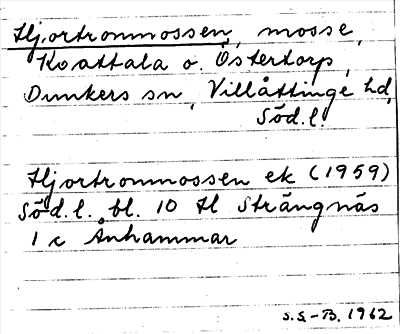 Hjortronmossen, mosse,
Koattala o. Östertorp,
Dunkers sn, Villåttinge hd,
Söd.l.
Hjortronmossen ek (1959)
Söd.l. bl. 10 tl Strängnäs
1 c Ånhammar
S.S-B. 1962